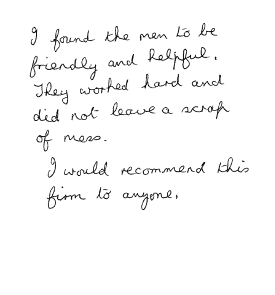 I found the men to be
friendly and helpful.
They worked hard and
did not leave a scrap
of mess.
I would recommend this
firm to anyone.